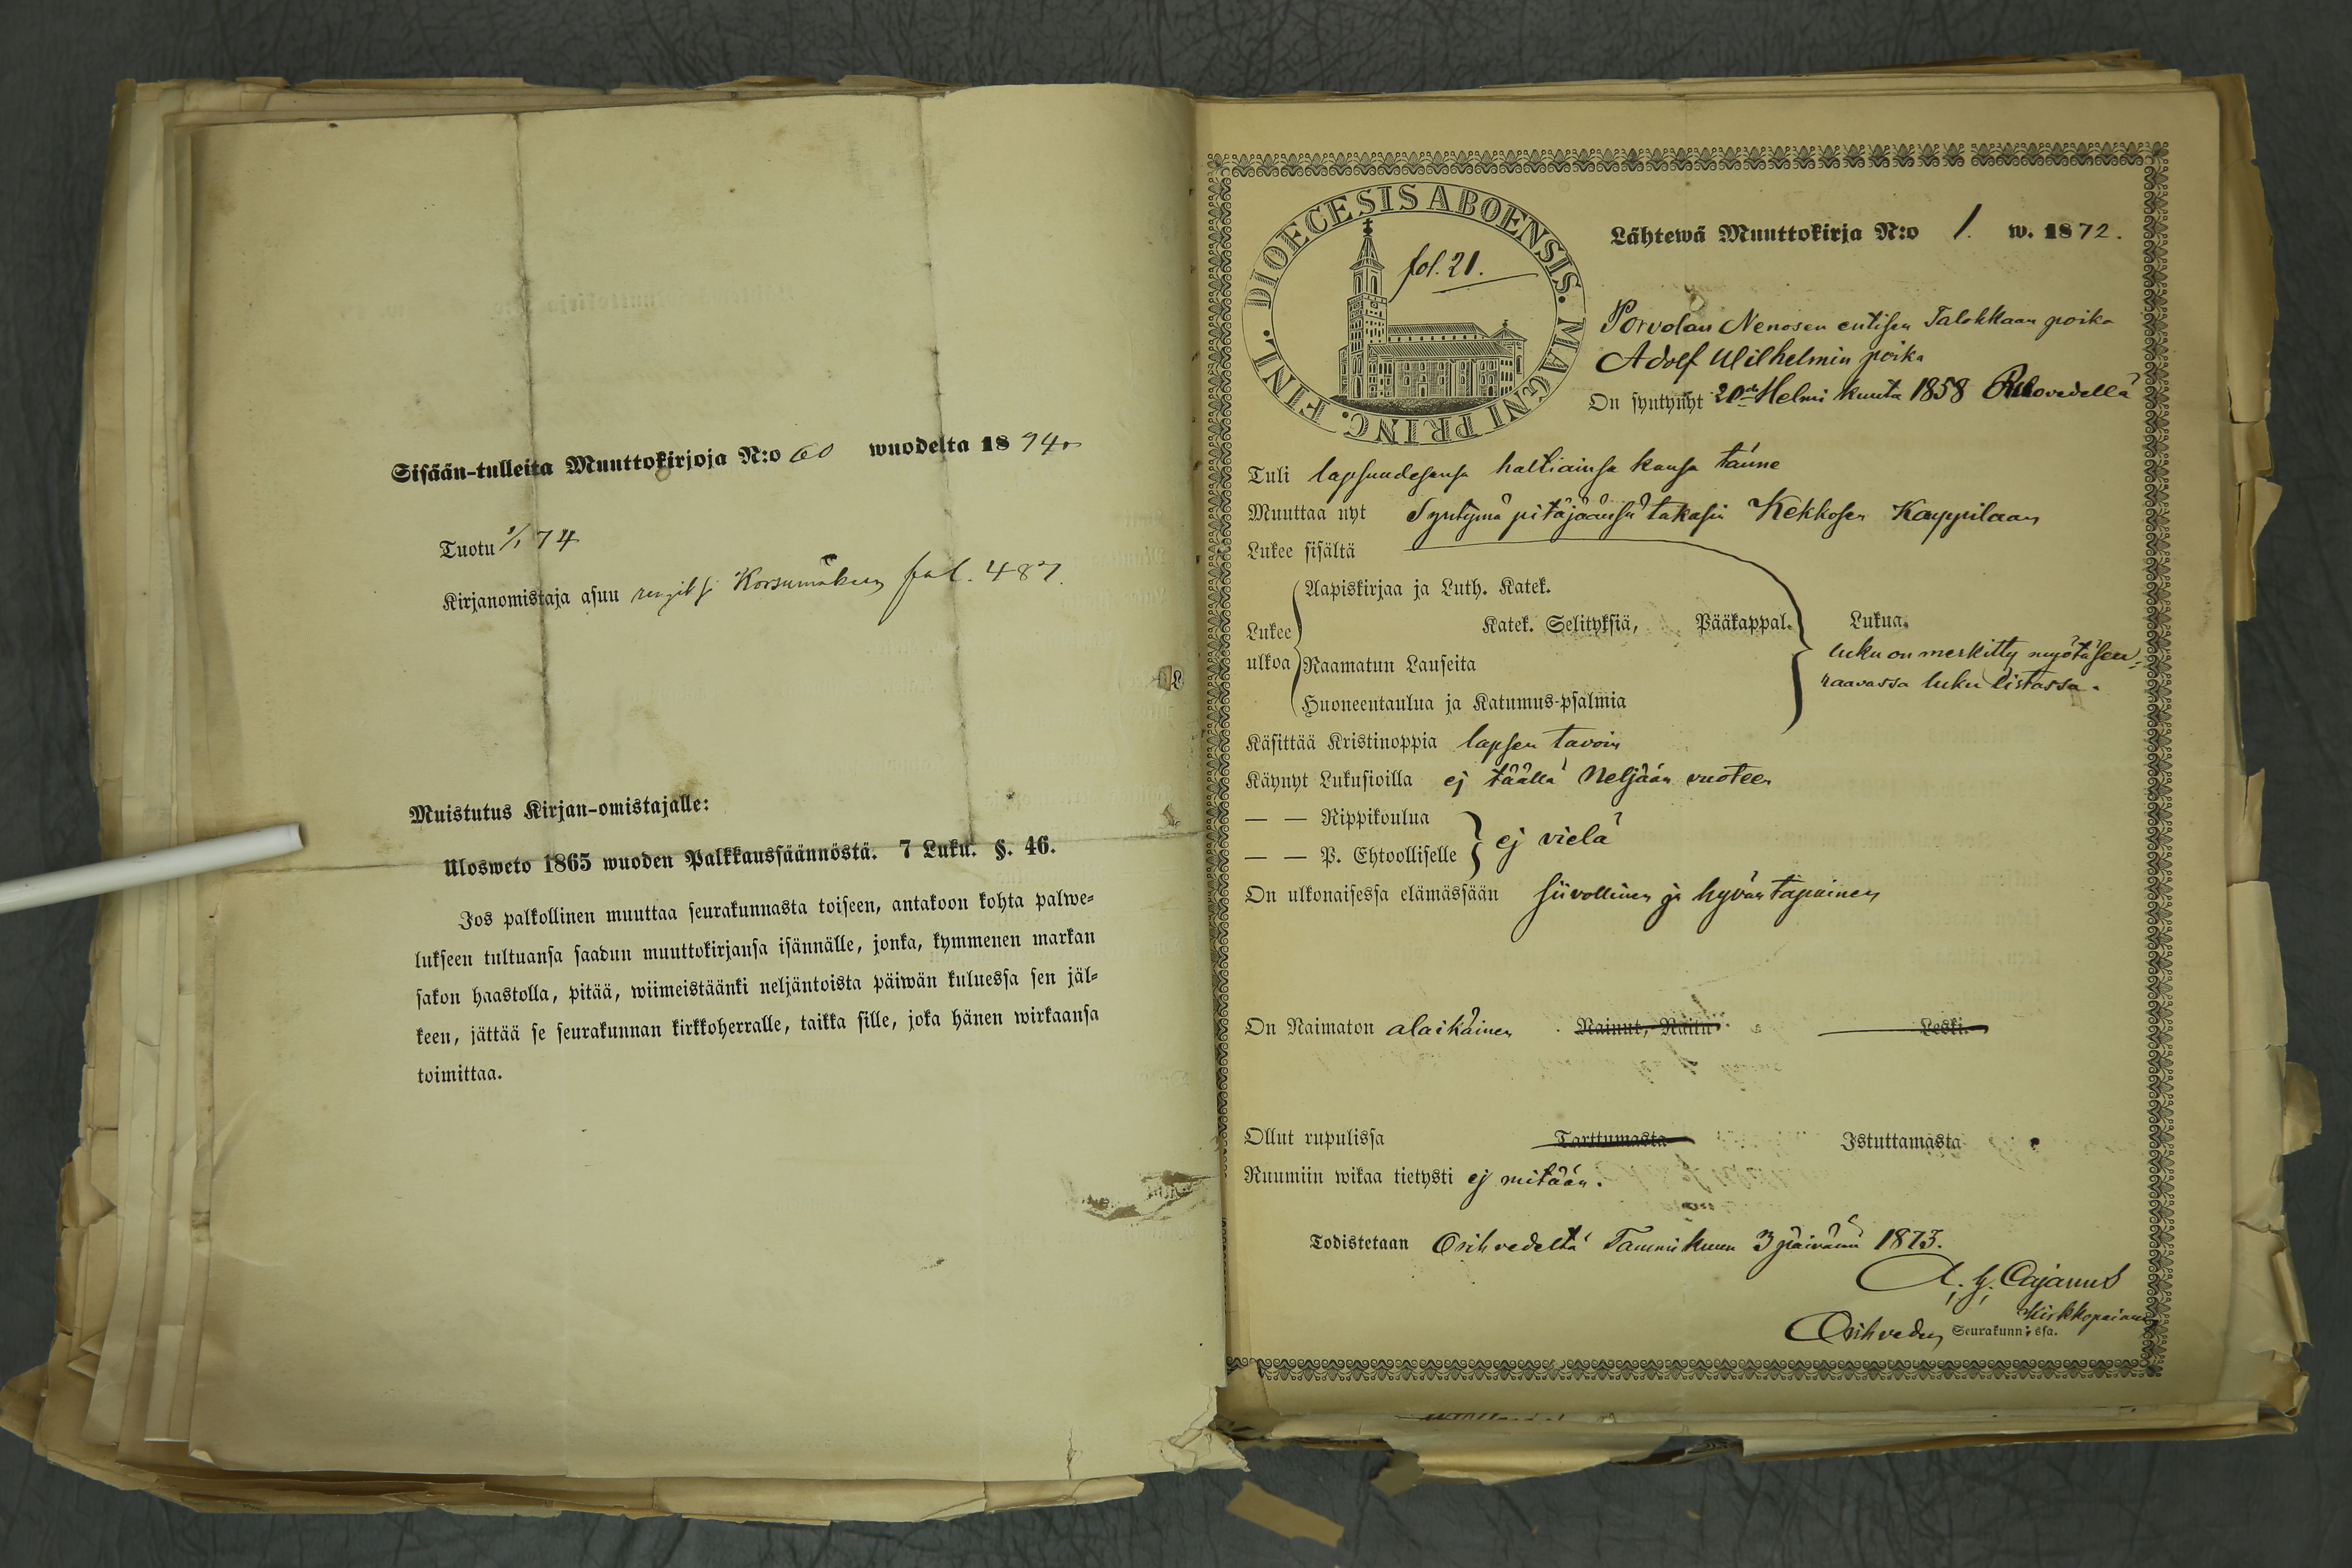 Sisään-tulleita Muuttokirjoja N:o 60 wuodelta 1874
Tuotu 1/1 74
Kirjanomistaja asuu Korsumäken fol. 487.
Muistutus Kirjan-omistajalle:
Ulosweto 1865 wuoden Palkkaussäännöstä. 7 Luku. §. 46.
Jos palkollinen muuttaa seurakunnasta toiseen, antakoon kohta palwe-
lukseen tultuansa saadun muuttokirjansa isännälle, jonka, kymmenen markan
sakon haastolla, pitää, wiimeistäänki neljäntoista päiwän kuluessa sen jäl-
keen, jättää se seurakunnan kirkkoherralle, taikka sille, joka hänen wirkaansa
toimittaa.
DIOECESIS ABOENSIS. MAGNI PRINC. FINL.
fol. 21.
Lähtewä Muuttokirja N:o 1. w. 1872.
Porvolan Nenosen entisen Talokkaan poika
Adolf Wilhelmin poika
On syntynyt 20 Helmi kuuta 1858 Ruovedellä
Tuli lapsuudesansa haltiainsa kansa tänne
Muuttaa nyt Syntymä pitäjäänsä takasin Kekkosen Kauppilaan
Lukee sisältä
Lukee ulkoa
Aapiskirjaa ja Luth. Katek.
Katek. Selityksiä, Pääkappal. Lukua.
Raamatun Lauseita
Huoneentaulua ja Katumus-psalmia
luku on merkitty myötäseu-
raavassa luku listassa.
Käsittää Kristinoppia lapsen tavoin
Käynyt Lukusioilla ej täällä Neljään vuoteen
— — Rippikoulua
— — P. Ehtoolliselle
ej vielä
On ulkonaisessa elämässään siivollinen ja hyvän tapainen
On Naimaton alaikäinen Nainut, Naitu Leski.
Ollut rupulissa Tarttumasta Istuttamasta
Ruumiin wikaa tietysti ej mitään.
Todistetaan Orihvedeltä Tammikuun 3 päivänä 1873.
A. H. Cajanus
Kirkkoherra
Orihveden Seurakunnassa.